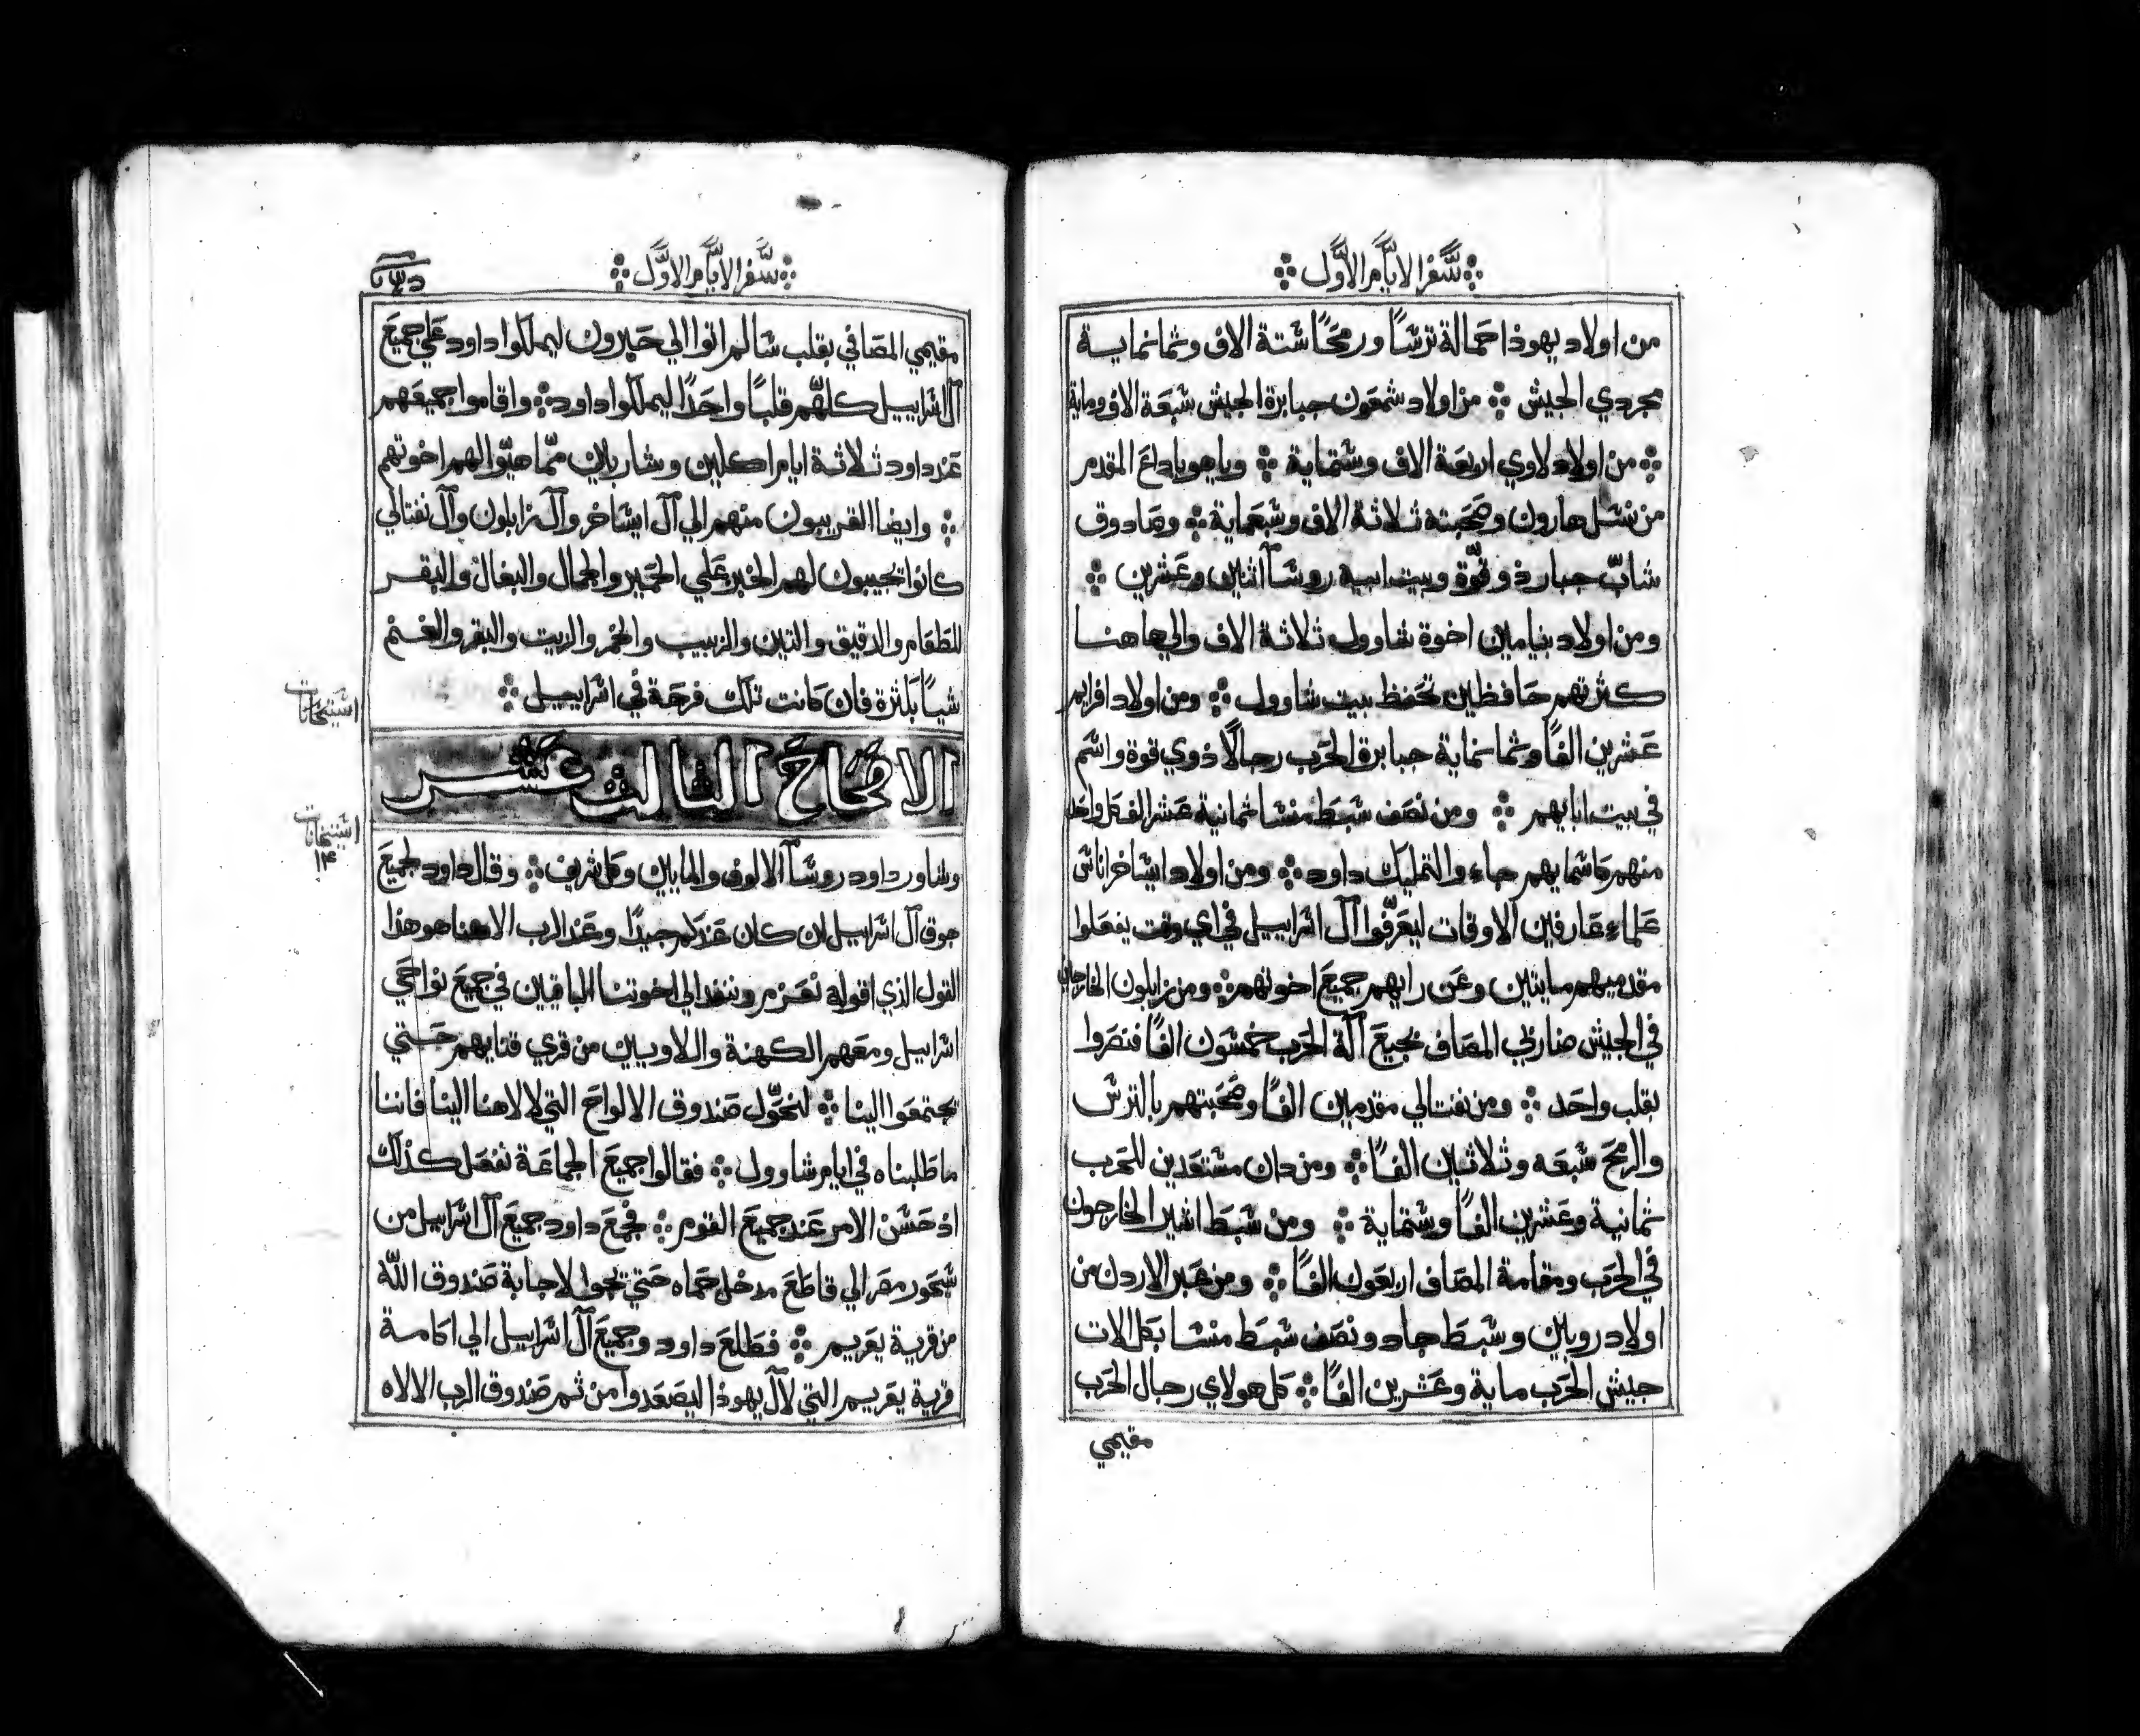 سفر الايام الاول
من اولاد يهوذا حمالة ترسًا ورمحًا ستة الاف وثمانماية
مجردي الجيش ⁘ من اولاد شمعون جبابرة الجيش سبعة الاف وماية
⁘ من اولاد لاوي اربعة الاف وستماية ⁘ وياهوياداع المقدم
من نسل هارون وصحبته ثلاثة الاف وسبعماية ⁘ وصادوق
شابّ جبار ذو قوّة وبيت ابيه روسآ اثنين وعشرين ⁘
ومن اولاد بنيامين اخوة شاوول ثلاثة الاف والي هاهنا
كثرتهم حافظين تحفظ بيت شاوول ⁘ ومن اولاد افرايم
عشرين الفًا وثمانماية جبابرة الحرب رجالًا ذوي قوة واسم
في بيت ابايهم ⁘ ومن نصف سبط منسا ثمانية عشر الف كل واحد
منهم كاسمايهم جاء والتمليك داود ⁘ ومن اولاد ايساخر اناس
علماء عارفين الاوقات ليعرّفوا آل اسراييل في اي وقت يفعلوا
مقدميهم مايتين وعن رايهم جميع اخوتهم ⁘ ومن زابلون الخارجين
في الجيش ضاربي المصاف بجميع آلة الحرب خمسون الفًا فنصروا
بقلب واحد ⁘ ومن نفتالي مقدمين الفًا وصحبتهم بالترس
والرمح سبعه وثلاثين الفًا ⁘ ومن دان مستعدين للحرب
ثمانية وعشرين الفًا وستماية ⁘ ومن سبط اشير الخارجون
في الحرب ومقامة المصاف اربعون الفًا ⁘ ومن عبر الاردن من
اولاد روبين وسبط جاد ونصف سبط منسا بكل الات
جيش الحرب ماية وعشرين الفًا ⁘ كل هولاي رجال الحرب
مقيمي
سفر الايام الاول
مقيمي المصافي بقلب سالم اتوا الي حبرون ليملكوا داود علي جميع
آل اسراييل كلهّم قلبًا واحدًا ليملكوا داود ⁘ واقاموا جميعهم
عند داود ثلاثة ايام اكلين وشاربين ممّا هيّوا لهم اخوتهم
⁘ وايضا القريبون منهم الي آل ايساخر وآل زابلون وآل نفتالي
كانوا تجيبون لهم الخبز علي الحمير والجمال والبغال والبقر
للطعام والدقيق والتين والزبيب والخمر والزيت والبقر والغنم
شياً بكثرة فان كانت تلك فرحة في اسراييل ⁘
الاصحاح الثالث عشر
وشاور داود روسآ الالوف والمايين وكل شريف ⁘ وقال داود لجميع
جوق آل اسراييل ان كان عندكم جيدًا وعند الرب الاهنا هو هذا
القول الذي اقوله نعزم وننفذ الي اخوتنا الباقيين في جميع نواحي
اسراييل ومعهم الكهنة والاويين من قري قنايهم حتي
يجتمعوا الينا ⁘ لنحوّل صندوق الالواح التي لالاهنا الينا فاننا
ما طلبناه في ايام شاوول ⁘ فقالوا جميع الجماعة نفعل كذلك
اذ حسن الامر عند جميع القوم ⁘ فجمع داود جميع آل اسراييل من
سحور مصر الي قاطع مدخل حماه حتي تجوا لاجابة صندوق اللّه
من قرية يعريم ⁘ فطلع داود وجميع آل اسراييل الي اكامة
قرية يعريم التي لآل يهوذا ليصعدوا من ثم صندوق الرب الالاه